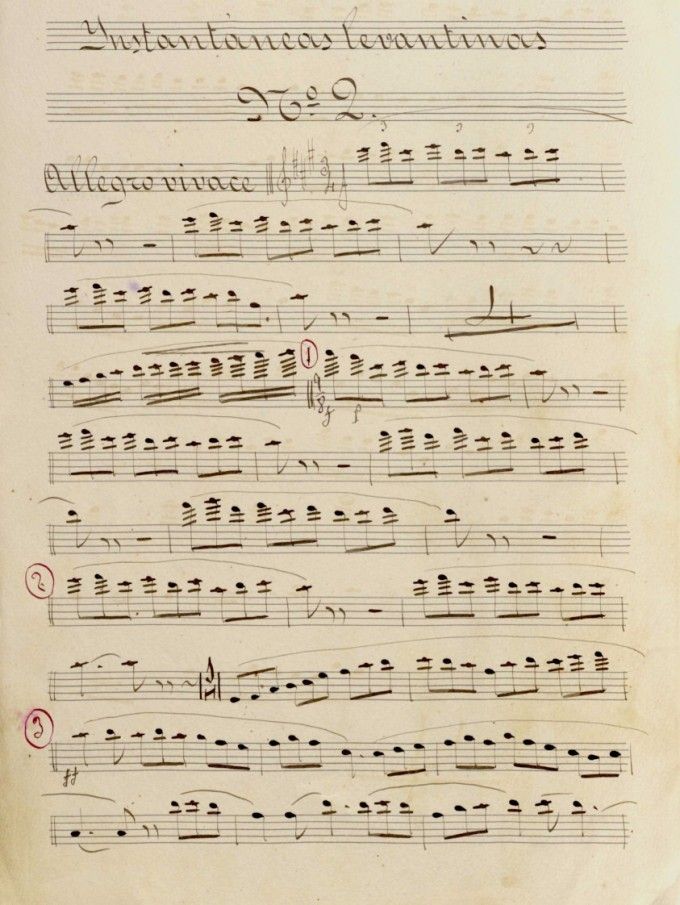 Ynstantáneas levantinas
Nº 2.
3 3 3
Allegro vivace 3 4 f
4
1
9 8 f p
2
3
ff